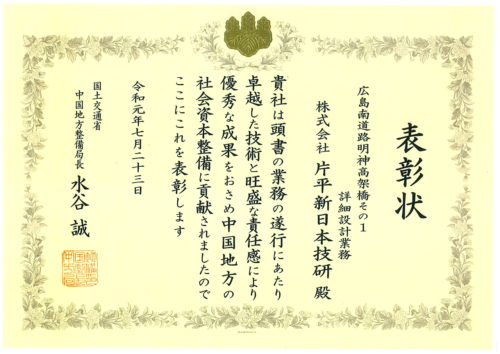 表彰状
広島南道路明神高架橋その1
詳細設計業務
株式会社 片平新日本技研 殿
貴社は頭書の業務の遂行にあたり
卓越した技術と旺盛な責任感により
優秀な成果をおさめ中国地方の
社会資本整備に貢献されましたので
ここにこれを表彰します
令和元年七月二十三日
国土交通省
中国地方整備局長 水谷 誠